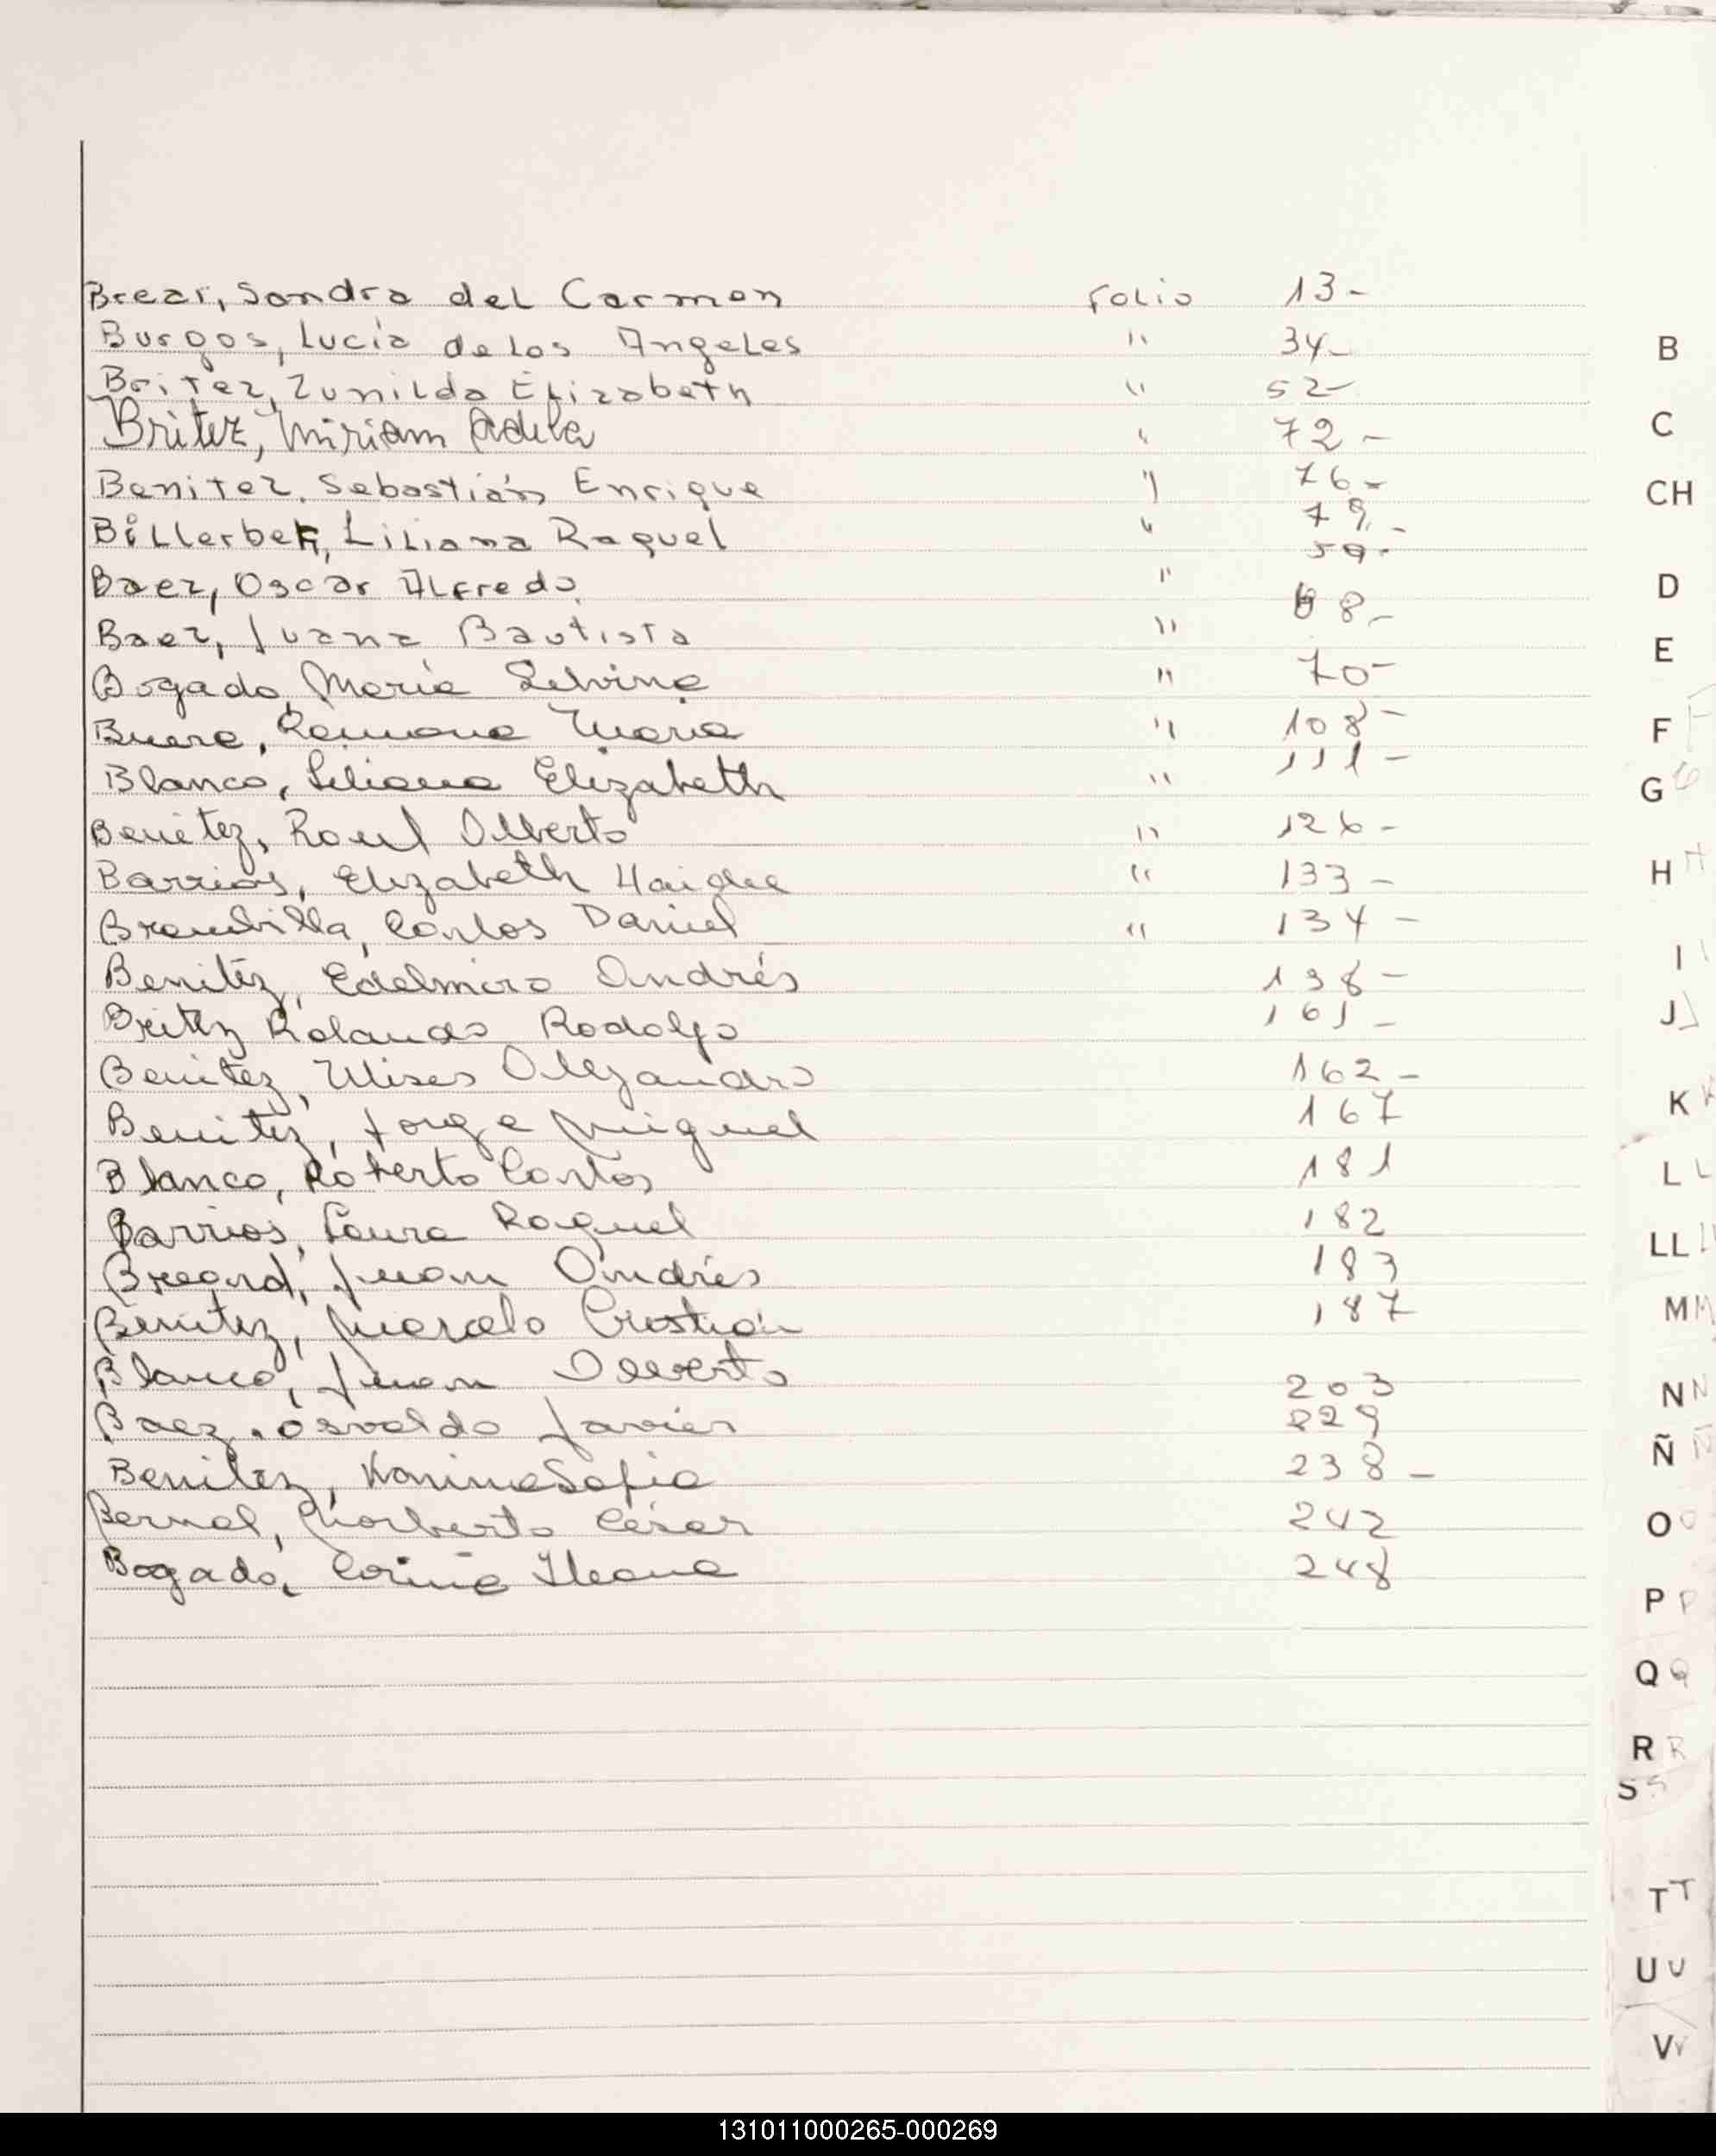 Brear, Sandra del Carmen Folio 13-
Burgos, Lucía de los Angeles " 34-
Britez, Zunilda Elizabeth " 52-
Britez, Miriam Adela " 72-
Benitez, Sebastián Enrique " 76-
Billerbek, Liliana Raquel " 79-
Baez, Oscar Alfredo " 59-
Baez, Juana Bautista " 68-
Bogado, María Silvina " 70-
Ramona María " 108-
Blanco, Liliana Elizabeth " 111-
Benitez, Raul Alberto " 126-
Barrios, Elizabeth Haidee " 133-
Brambilla, Carlos Daniel " 134-
Benitez, Edelmiro Andrés 138-
Britez Rolando Rodolfo 161-
Benitez, Ulises Alejandro 162-
Benitez, Jorge Miguel 167
Blanco, Roberto Carlos 181
Barrios, Laura Raquel 182
Breard, Juan Andrés 183
Benitez, Marcelo Cristián 187
Blanco, Juan 203
Baez, Osvaldo Javier 229
Benitez, Karina Sofia 238-
Bernal, Norberto César 242
Bogado, Corina Ileana 248
B
C
CH
D
E
F F
G G
H H
I I
J J
K K
L L
LL LL
M M
N N
Ñ Ñ
O O
P P
Q Q
R R
S S
T T
U U
V V
131011000265-000269